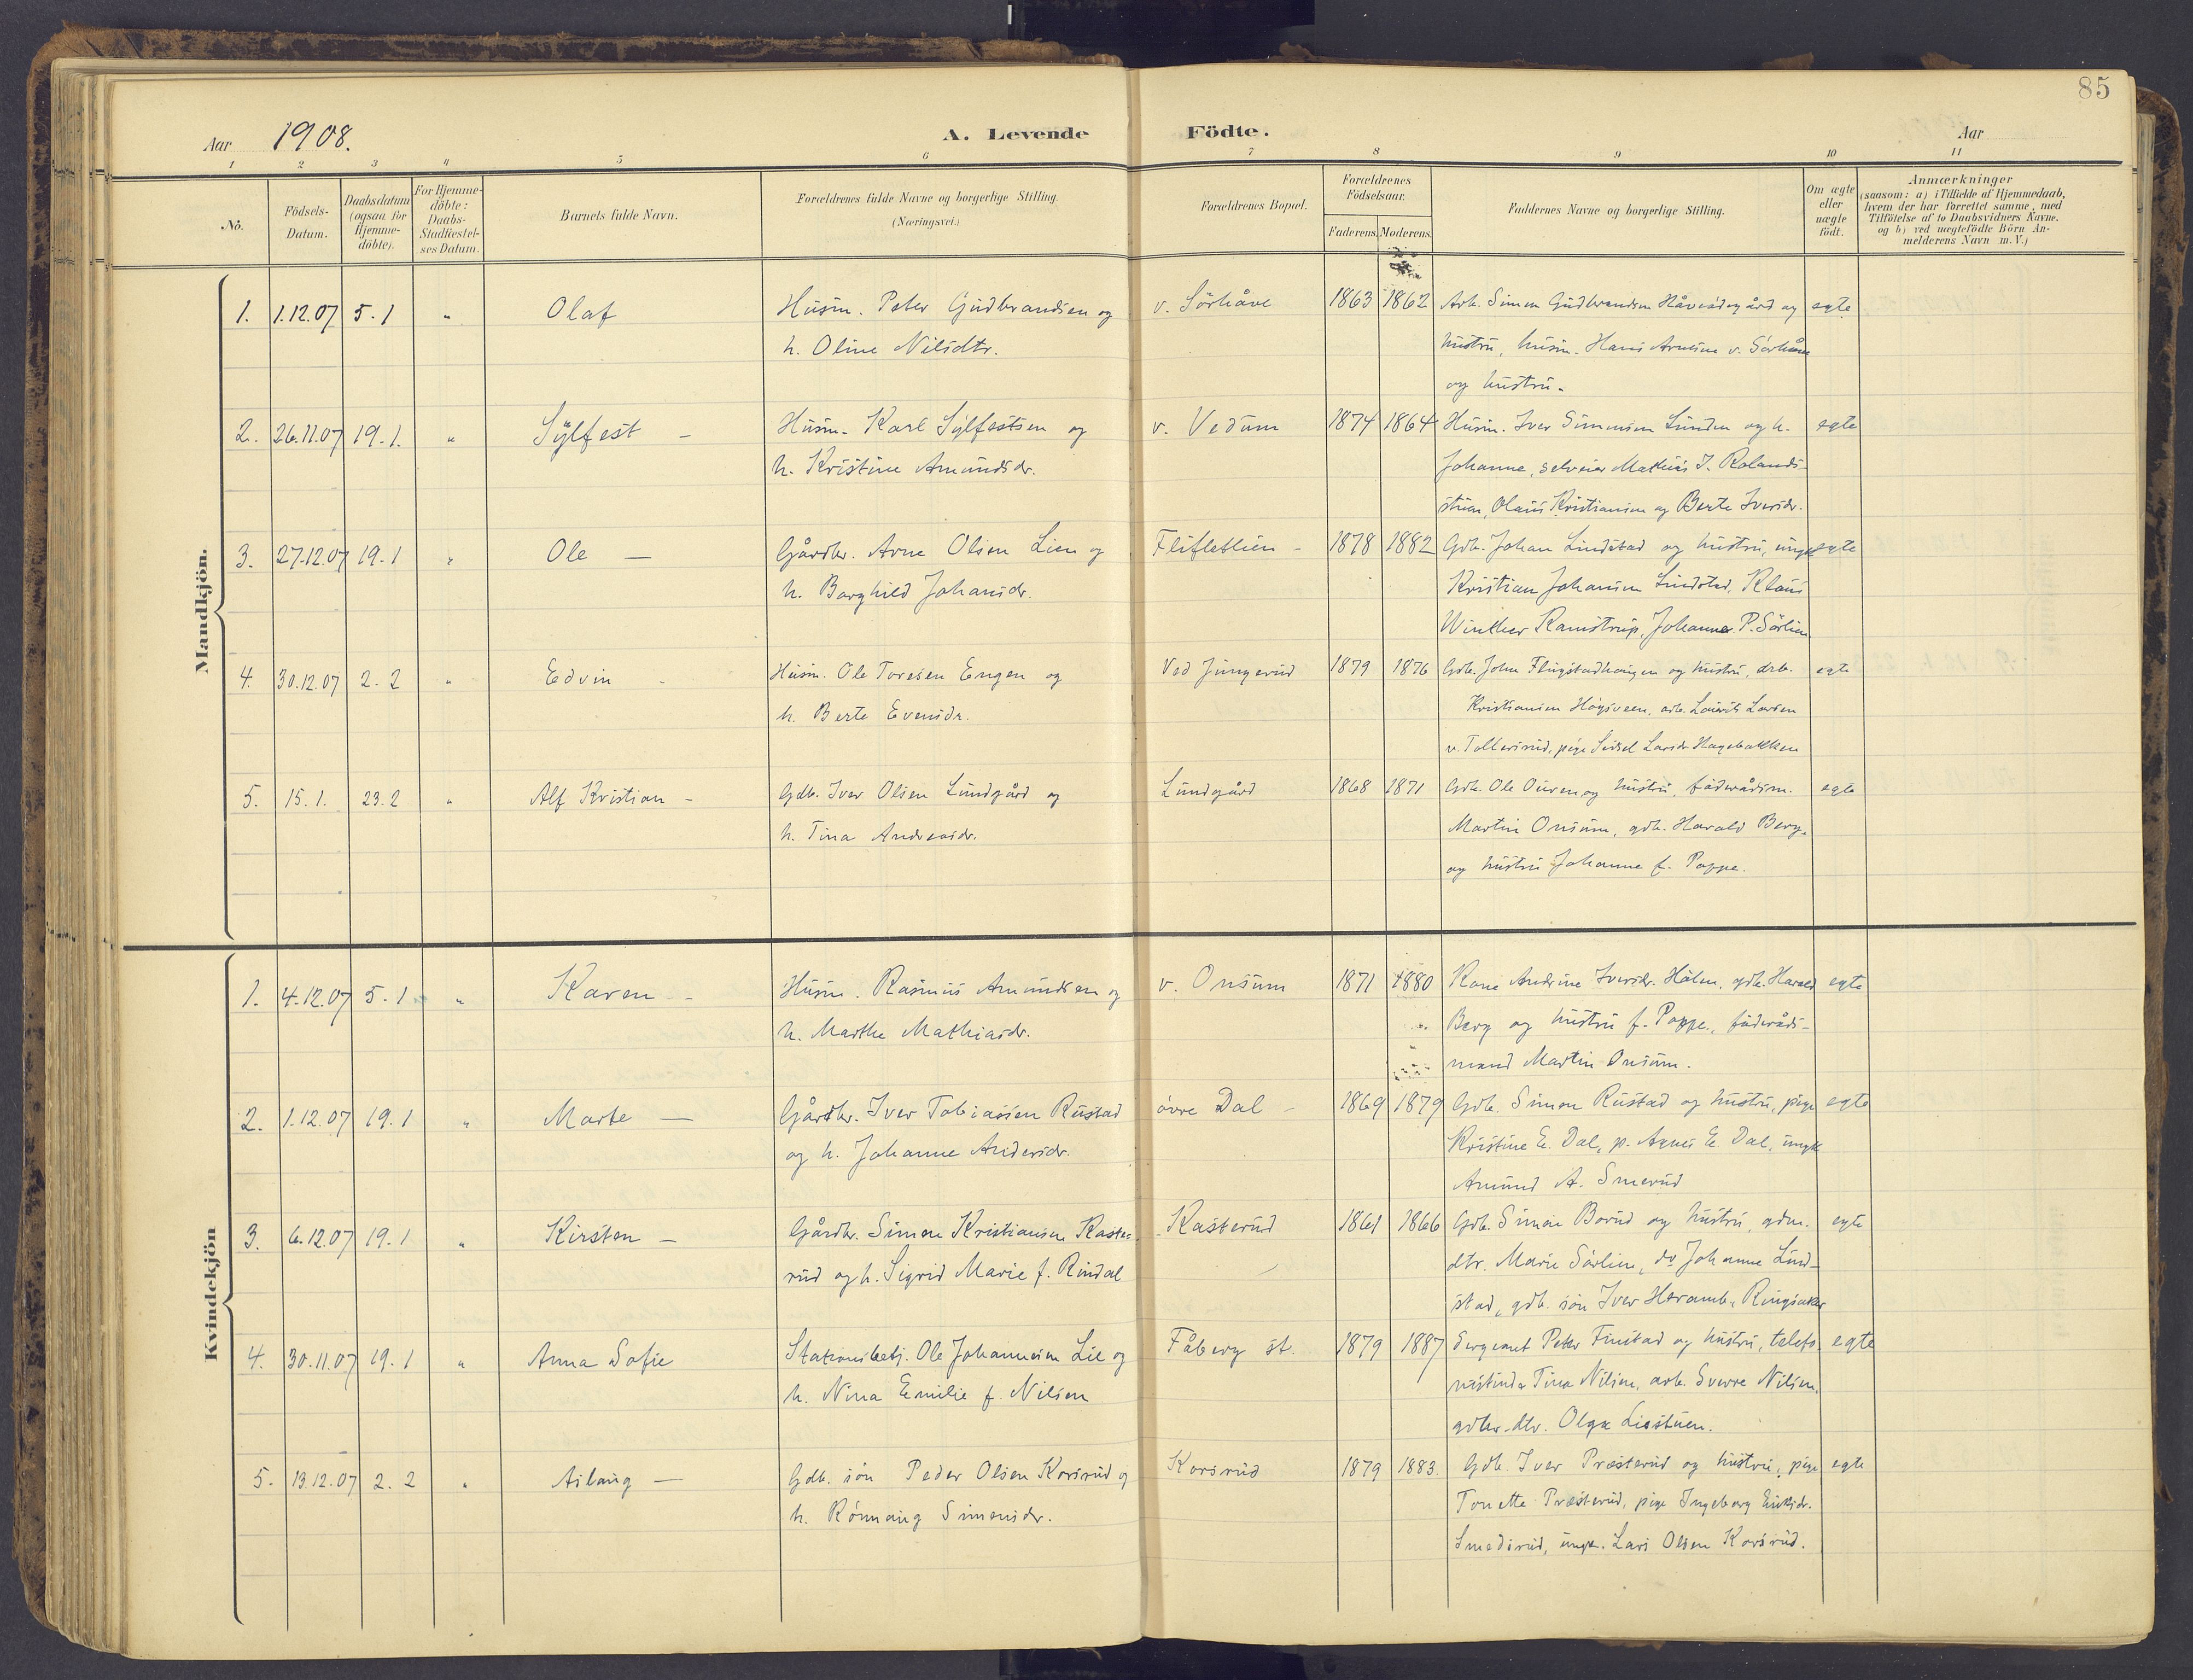 85
Aar 1908. A. Levende Födte. Aar
1 2 3 4 5 6 7 8 9 10 11
No.
Födsels-
Datum.
Daabsdatum
(ogsaa for
Hjemme-
döbte).
For Hjemme-
döbte:
Daabs-
Stadfæstel-
ses Datum.
Barnets fulde Navn.
Forældrenes fulde Navne og borgerlige Stilling.
(Næringsvei.)
Forældrenes Bopæl.
Forældrenes
Födselsaar.
Faderens. Moderens.
Faddernes Navne og borgerlige Stilling.
Om ægte
eller
uægte
födt.
Anmærkninger
(saasom: a) i Tilfælde af Hjemmedaab,
hvem der har forrettet samme, med
Tilföielse af to Daabsvidners Navne.
og b) ved uægtefödte Börn An-
melderens Navn m.V.)
Mandkjön.
1. 1.12.07 5.1 " Olaf Husm. Peter Gudbrandsen og v. Sörhåve 1863 1862 Arb. Simen Gudbrandsen og egte
h. Oline Nilsdtr. hustru, husm. Hans Arnesen v. Sörhåve
og hustru.
2. 26.11.07 19.1. " Sylfest - Husm. Karl Sylfestsen og v. Vedum 1874 1864 Husm. Iver Simensen Lunden og h. egte
h. Kristine Amundsdr. Johanne, selveier Mathias J. Rolands-
stuen, Olaus Kristiansen og Berte Iversdr.
3. 27.12.07 19.1 " Ole — Gårdbr. Arne Olsen Lien og Flifletlien - 1878 1882 Gdb. Johan Lindstad og hustru, ungk egte
h. Borghild Johansdr. Kristian Johansen Lindstad, Klaus
Winther Ramstrup, Johannes P. Sörlien
4. 30.12.07 2.2 " Edvin - Husm. Ole Toresen Engen og Ved Jungerud 1879 1876 Gdb. John Flugstadhaugen og hustru, arb. egte
h. Berte Evensdr. Kristiansen Högsveen, arb. Laurits Larsen
v. Tollersrud, pige Sidsel Larsdr. Hagebakken
5. 15.1. 23.2 " Alf Kristian - Gdb. Iver Olsen Lundgård og Lundgård 1868 1871 Gdb. Ole Ouren og hustru, föderådsm. egte
h. Tina Andreasdr. Martin Onsum, gdb. Harald Berg
og hustru Johanne f. Poppe.
Kvindekjön
1. 4.12.07 5.1 " Karen - Husm. Rasmus Amundsen og v. Onsum 1871 1880 Kone Andrine Iversdr. Holen, gdb. Harald egte
h. Marthe Mathiasdr. Berg og hustru f. Poppe, föderåds-
mand Martin Onsum.
2. 1.12.07 19.1 " Marte — Gårdbr. Iver Tobiassen Rustad övre Dal - 1869 1879 Gdb. Simen Rustad og hustru, pige egte
og h. Johanne Andersdr. Kristine E. Dal, p. Agnes E. Dal, ungk
Amund A. Smerud
3. 6.12.07 19.1 " Kirsten — Gårdbr. Simen Kristiansen Kaste- Kasterud 1861 1866 Gdb. Simen Borud og hustru, gdm. egte
rud og h. Sigrid Marie f. Rindal dtr. Marie Sörlien, do Johanne Lind-
stad, gdb. sön Iver Heramb, Ringsaker
4. 30.11.07 19.1 " Anna Sofie Stationsbetj. Ole Johannesen Lie og Fåberg st. 1879 1887 Sergeant Peter Finstad og hustru, telefo- egte
h. Nina Emilie f. Nilsen nistinde Tina Nilsen, arb. Sverre Nilsen,
gdbr. dtr. Olga Liestuen.
5. 13.12.07 2.2 " Aslaug — Gdb. sön Peder Olsen Korsrud og Korsrud 1879 1883. Gdb. Iver Præsterud og hustru, pige egte
h. Rönnaug Simensdr. Tonette Præsterud, pige Ingeborg Eriksdr.
Smedsrud, ungk. Lars Olsen Korsrud.